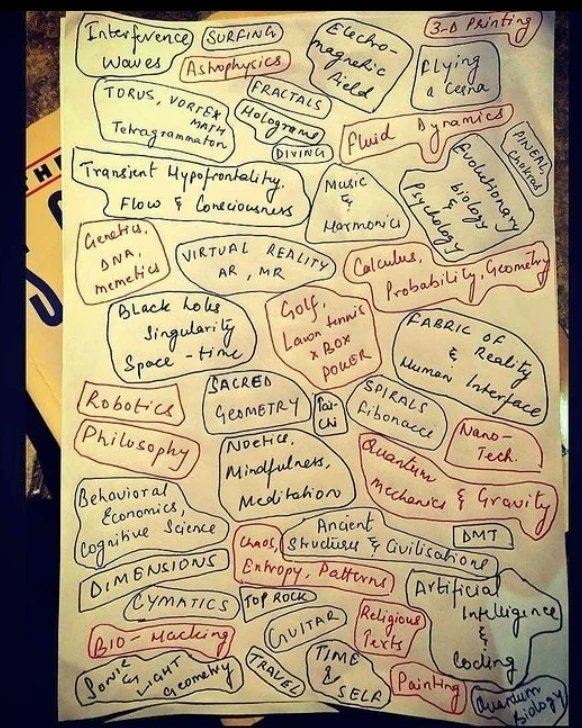 Interference
Waves
SURFING
Astrophysics
Electro-
magnetic
field
3-D Printing
Flying
a Cesna
TORUS, VORTEX
MATH
Tetragrammaton
FRACTALS
Holograms
DIVING
Fluid Dynamics
PINEAL,
Chakras
Transient Hypofrontality,
Flow & Consciousness
Music
&
Harmonics
Evolutionary
biology
&
Psychology
Genetics,
DNA,
memetics
VIRTUAL REALITY
AR, MR
Calculus,
Probability, Geometry
Black holes
Singularity
Space-time
Golf,
Lawn tennis
X BOX
POWER
FABRIC OF
& Reality
Human Interface
Robotics
SACRED
GEOMETRY
Tai-
chi
SPIRALS
Fibonacci
Nano-
Tech.
Philosophy
Noetics,
Mindfulness,
Meditation
Quantum
Mechanics & Gravity
Behavioral
Economics,
Cognitive Science
Chaos,
Entropy, Patterns
Ancient
Structures & Civilisations
DMT
DIMENSIONS
CYMATICS
TOP ROCK
Artificial
Intelligence
&
Coding
BIO-Hacking
GUITAR
Religious
Texts
SONIC
& LIGHT
Geometry
TRAVEL
TIME
&
SELF
Painting
Quantum
biology
THE
S